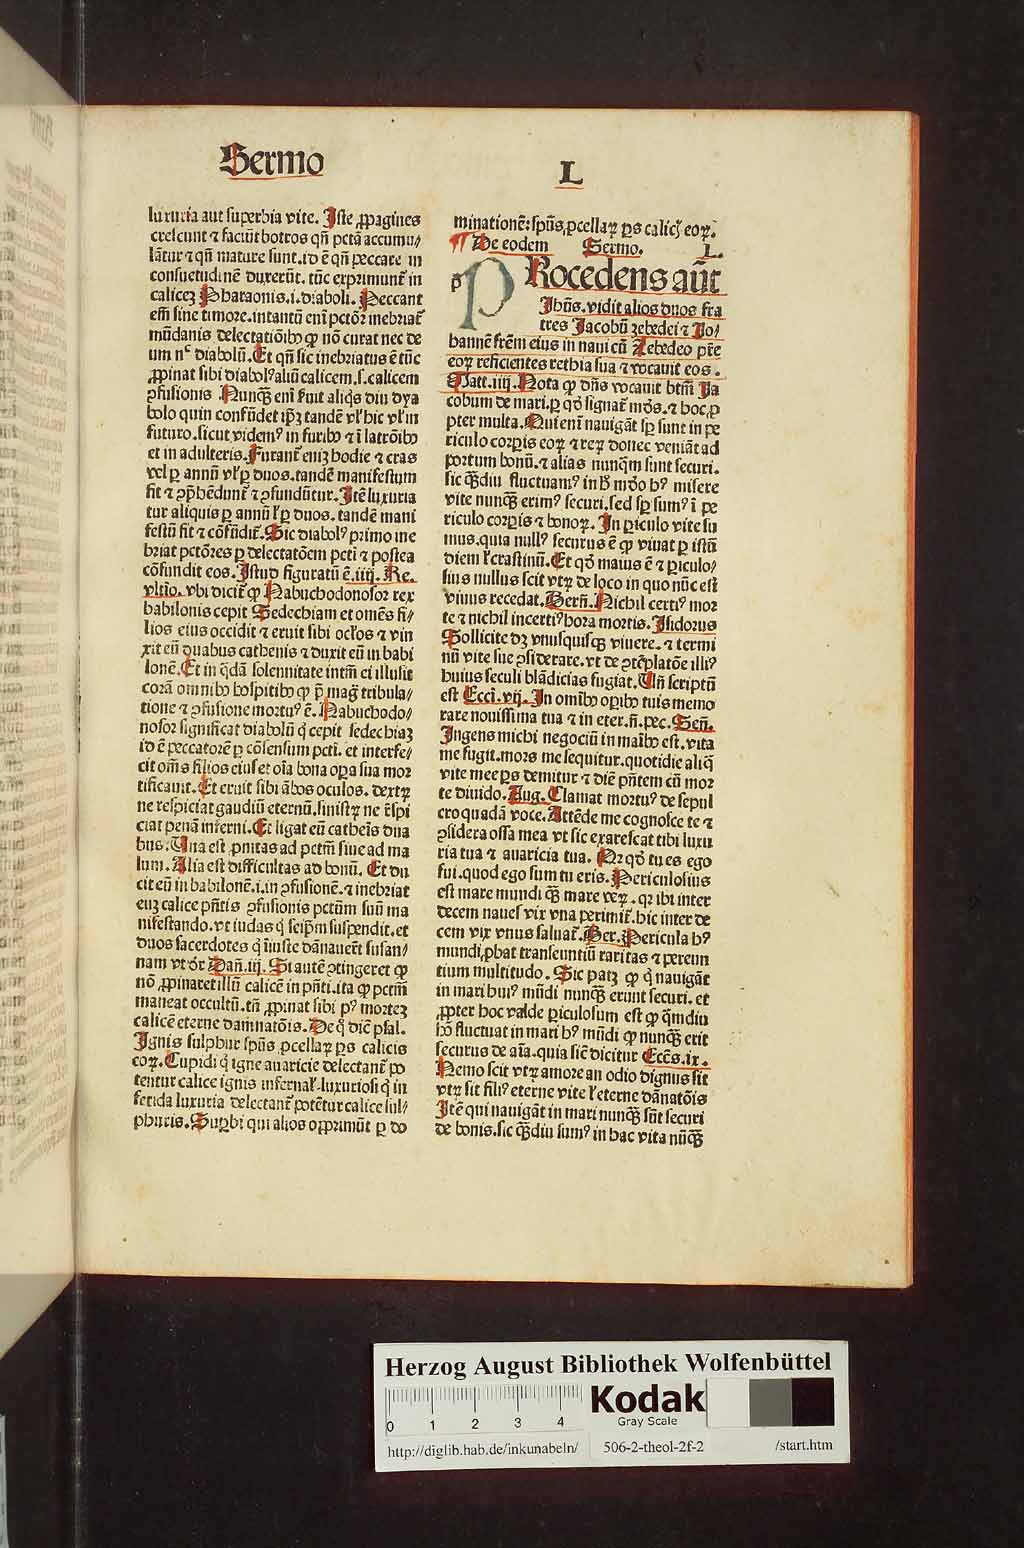 Sermo
L
luxuria aut superbia vite. Iste ꝓpagines
crescunt ⁊ faciūt botros qn̄ pctā accumu/
lātur ⁊ qn̄ mature sunt. id ē qn̄ peccare in
consuetudinē duxerūt. tūc exprimunt̄ in
calicez Pharaonis .i. diaboli. Peccant
em̄ sine timore. intantū eni pctōr inebriat̄
mūdanis delectatiōibꝰ ꝙ nō curat nec de
um nͨ diabolū. Et qn̄ sic inebriatus ē tūc
ꝓpinat sibi diabolꝰ aliū calicem .s. calicem
ꝯfusionis. Nunqꝫ eni fuit aliqs diu dya
bolo quin confūdet ipꝫ tandē vl' hic vl' in
futuro. sicut videmꝰ in furibꝰ ⁊ ī latrōibꝰ
et in adulteris. Furant̄ eniꝫ hodie ⁊ cras
vel ꝑ annū vl' ꝑ duos. tandē manifestum
fit ⁊ ꝯp̄hēdunt̄ ⁊ ꝯfundūtur. Itē luxuria
tur aliquis ꝑ annū l' ꝑ duos. tandē mani
festū fit ⁊ cōfūdit̄. Sic diabolꝰ primo ine
briat pctōres ꝑ delectatōem pcti ⁊ postea
cōfundit eos. Istud figuratū ē .iiij. Re.
vltīo. vbi dicit̄ ꝙ Nabuchodonosor rex
babilonis cepit Sedechiam et omēs fi/
lios eius occidit ⁊ eruit sibi oclos ⁊ vin
xit eū duabus cathenis ⁊ duxit eū in babi
lonē. Et in qdā solennitate intm̄ ei illusit
corā omnibꝰ hospitibꝰ ꝙ p̄ mag tribula/
tione ⁊ ꝯfusione mortuꝰ ē. Nabuchodo/
nosor significat diabolū q̇ cepit sedechiaꝫ
id ē peccatorē ꝑ cōsensum pcti. et interfe/
cit om̄s filios eius et oīa bona oꝑa sua mor
tificauit. Et eruit sibi ābos oculos. dextꝝ
ne respiciat gaudiū eternū. sinistꝝ ne ēspi
ciat penā inferni. Et ligat eū cathenis dua
bus. Una est ꝓnitas ad pctm̄ siue ad ma
lum. Alia est difficultas ad bonū. Et du
cit eū in babilonē .i. in ꝯfusionē. ⁊ inebriat
euꝫ calice pn̄tis ꝯfusionis pctūm suū ma
nifestando. vt iudas q̇ seip̄m suspendit. et
duos sacerdotes q̇ īiuste dānauert̄ susan/
nam vt dr̄ Dan̄ .iij. Si autē ꝯtingeret ꝙ
nō ꝓpinaret illū calicē in pn̄ti. ita ꝙ pctm̄
maneat occultū. tn̄ ꝓpinat sibi pꝰ mortez
calicē eterne damnatōis. De q̇ diē psal.
Ignis sulphur spūs ꝓcellaꝝ ꝑs calicis
eoꝝ. Cupidi q̇ igne auaricie delectant̄ po
tentur calice ignis infernal'. luxuriosi q̇ in
fetida luxuria delectant̄ potētur calice sul/
phuris. Suꝑbi qui alios opprimūt ꝑ do
minationē: spūs ꝓcellaꝝ ꝑs calicꝭ eoꝝ.
¶ De eodem Sermo. L.
p PRocedens aūt
Ihūs. vidit alios duos fra
tres Jacobū zebedei ⁊ Jo/
hannē frēm eius in naui cū Zebedeo pr̄e
eoꝝ reficientes rethia sua ⁊ vocauit eos.
Matt .iiij. Nota ꝙ dn̄s vocauit btm̄ Ja
cobum de mari. ꝑ qđ signat̄ mōs. ⁊ hoc ꝓ
pter multa. Qui eni nauigāt sp̄ sunt in pe
riculo corꝑis eoꝝ ⁊ reꝝ donec veniāt ad
portum bonū. ⁊ alias nunq̄m sunt securi.
sic qꝫdiu fluctuamꝰ in hͦ mōo hꝰ misere
vite nunqꝫ erimꝰ securi. sed sp̄ sumꝰ ī pe
riculo corꝑis ⁊ bonoꝝ. In ꝑiculo vite su
mus. quia nullꝰ securus ē ꝙ viuat ꝑ istū
diem l' crastinū. Et qđ maius ē ⁊ ꝑiculo/
sius nullus scit vtꝝ de loco in quo nūc est
viuus recedat. Bern̄. Nichil certiꝰ mor
te ⁊ nichil incertiꝰ hora mortis. Isidorus
Sollicite dꝫ vnusquisqꝫ viuere. ⁊ termi
nū vite sue ꝯsiderare. vt de ꝯtēplatōe illiꝰ
huius seculi blādicias fugiat. Un̄ scriptū
est Ecci. vij. In omībꝰ oꝑibꝰ tuis memo
rare nouissima tua ⁊ in eter. n̄. pec. Sen̄.
Ingens michi negociū in maībꝰ est. vita
me fugit. mors me sequitur. quotidie aliq̄
vite mee ꝑs demitur ⁊ diē pn̄tem cū mor
te diuido. Aug. Clamat mortuꝰ de sepul
cro quadā voce. Attēde me cognosce te ⁊
ꝯsidera ossa mea vt sic exarescat tibi luxu
ria tua ⁊ auaricia tua. Nr̄ qđ tu es ego
fui. quod ego sum tu eris. Periculosius
est mare mundi qꝫ mare veꝝ. qꝛ ibi inter
decem naues vix vna perimit̄. hic inter de
cem vix vnus saluat̄. Ber. Pericula hꝰ
mundi ꝓbat transeuntiū raritas ⁊ pereun
tium multitudo. Sic patꝫ ꝙ q̇ nauigāt
in mari huiꝰ mūdi nunqꝫ erunt securi. et
ꝓpter hoc valde ꝑiculosum est ꝙ q̄mdiu
hō fluctuat in mari hꝰ mūdi ꝙ nunqꝫ erit
securus de aīa. quia sic̄ dicitur Eccēs .ix.
Nemo scit vtꝝ amore an odio dignus sit
vtꝝ sit filiꝰ eterne vite l' eterne dānatōis
Itē qui nauigāt in mari nunqꝫ sūt securi
de bonis. sic qꝫdiu sumꝰ in hac vita nūqꝫ
Herzog August Bibliothek Wolfenbüttel
0 1 2 3 4
Kodak
Gray Scale
http://diglib.hab.de/inkunabeln/ 506-2-theol-2f-2 /start.htm